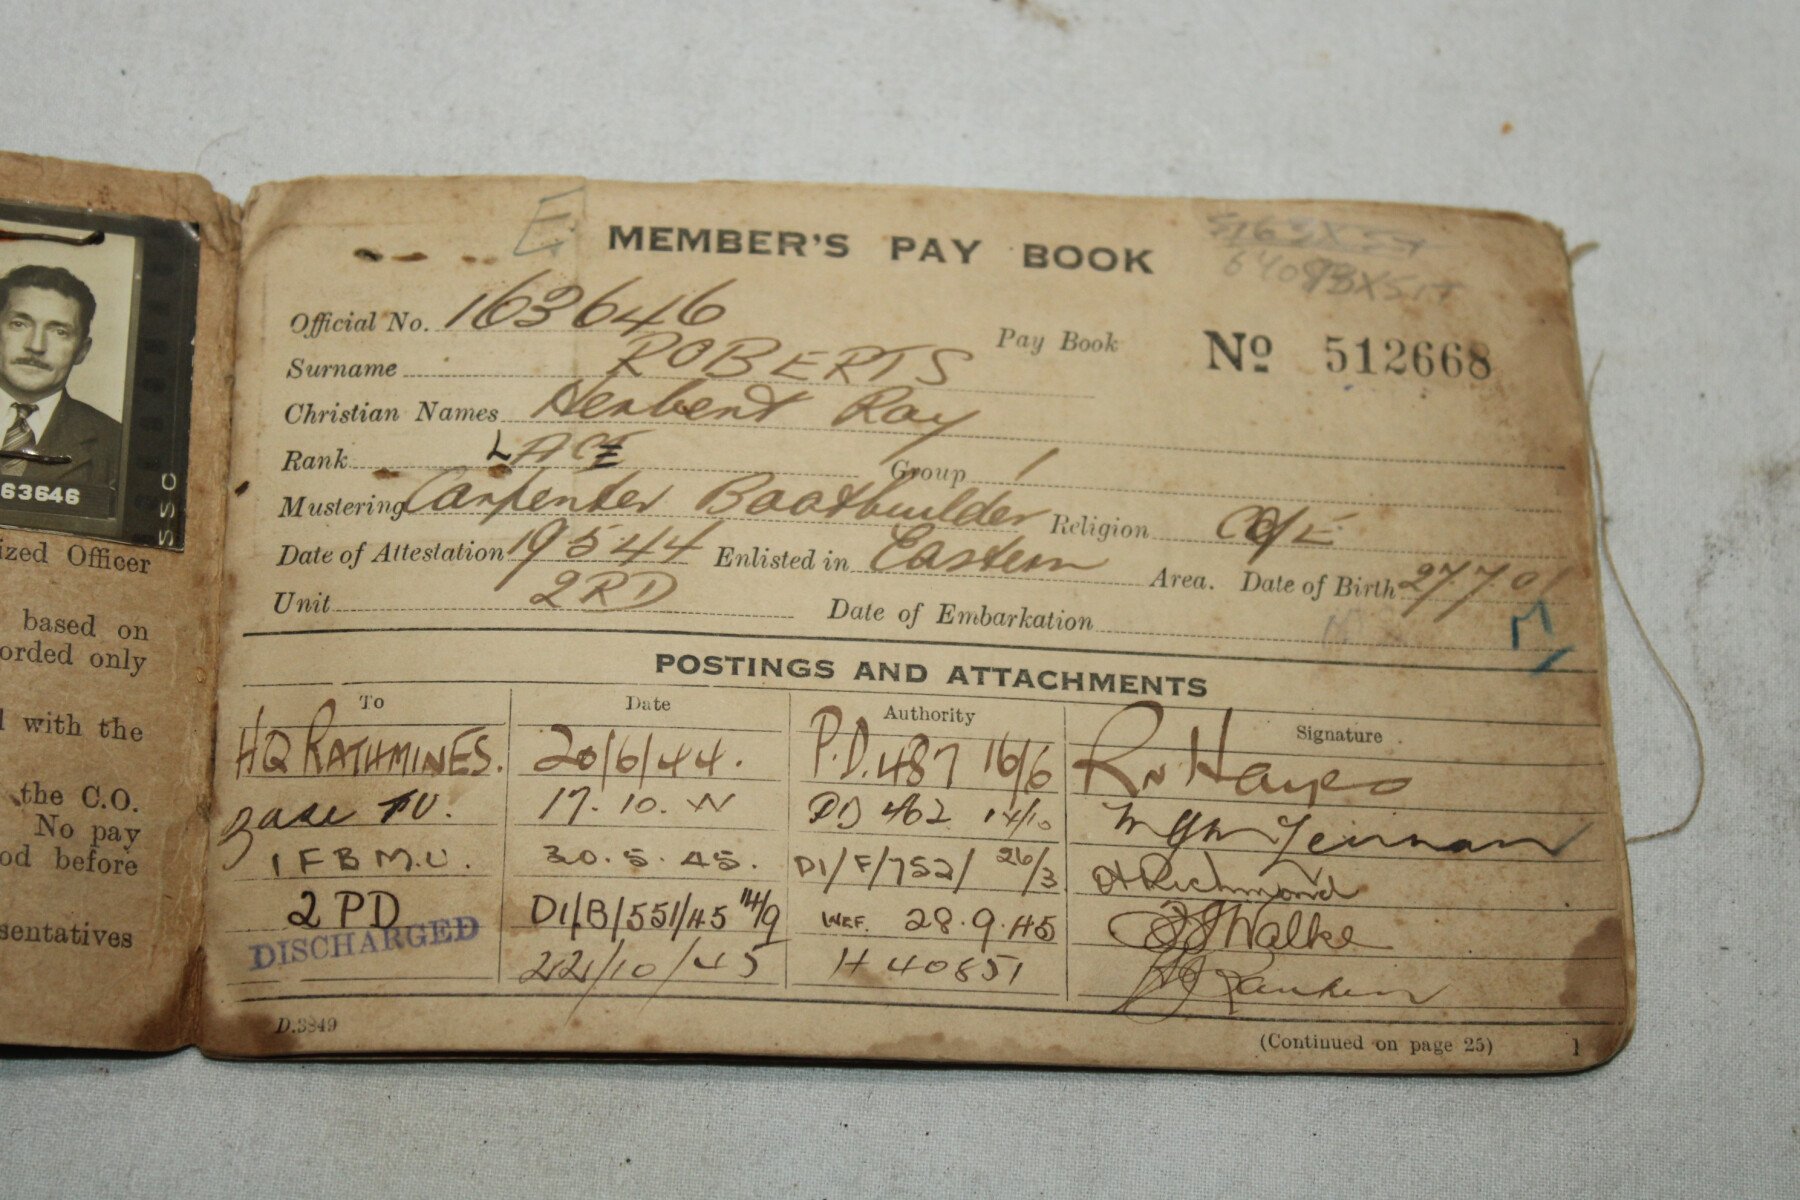 63646
SSC
ized Officer
based on
orded only
with the
the C.O.
No pay
od before
sentatives
E
MEMBER'S PAY BOOK
Official No. 163646
Pay Book Nº 512668
Surname ROBERTS
Christian Names Herbert Ray
Rank LAC Group 1
Mustering Carpenter Boatbuilder Religion C/E
Date of Attestation 19 5 44 Enlisted in Eastern Area. Date of Birth 27/7/01
Unit 2RD Date of Embarkation
POSTINGS AND ATTACHMENTS
To Date Authority Signature
HQ RATHMINES. 20/6/44. P.D. 487 16/6 R N Hayes
Base 17. 10. PD 462 14/10
1 F B M.U. 30.5.45. D1/F/752/ 26/3 Richmond
2 PD D1/B/551/45 14/9 WEF. 28.9.45 Walke
DISCHARGED 22/10/45 H 40851
D.3849
(Continued on page 25) 1